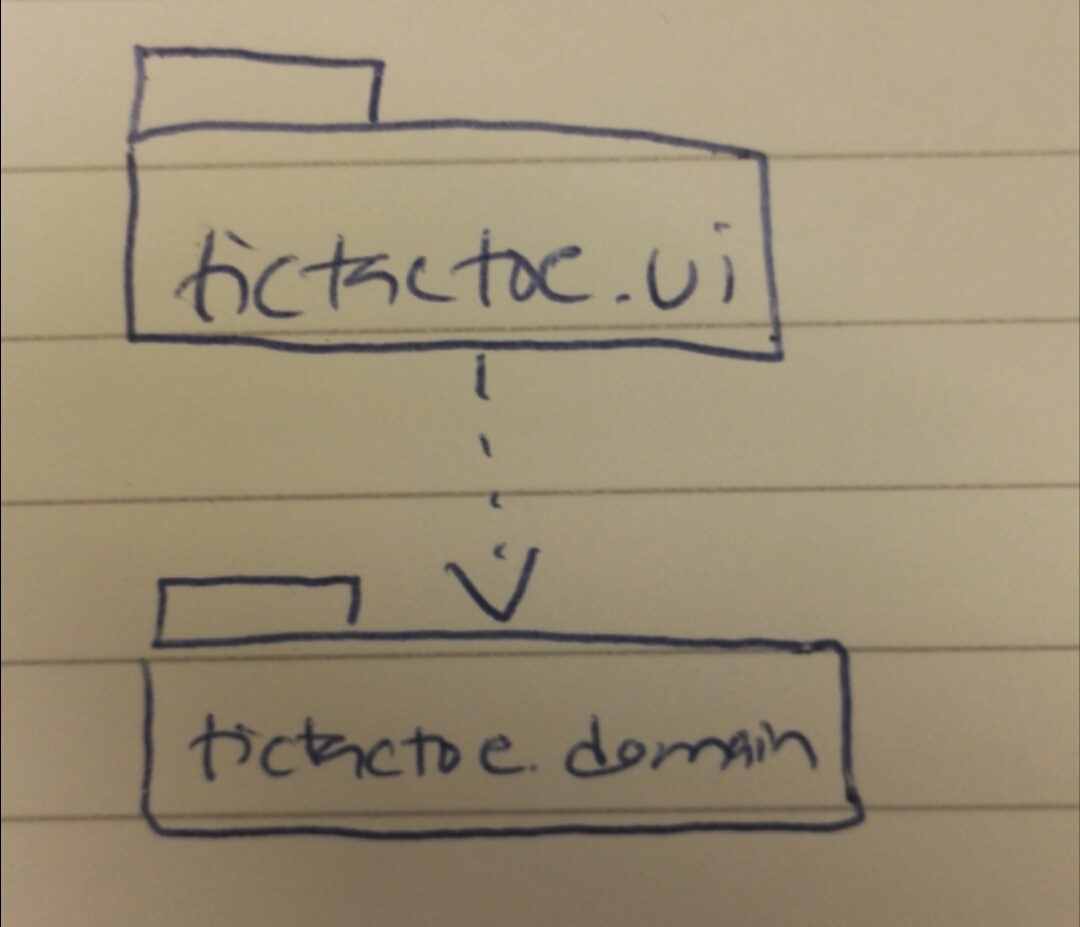 tictactoe.ui
tictactoe.domain